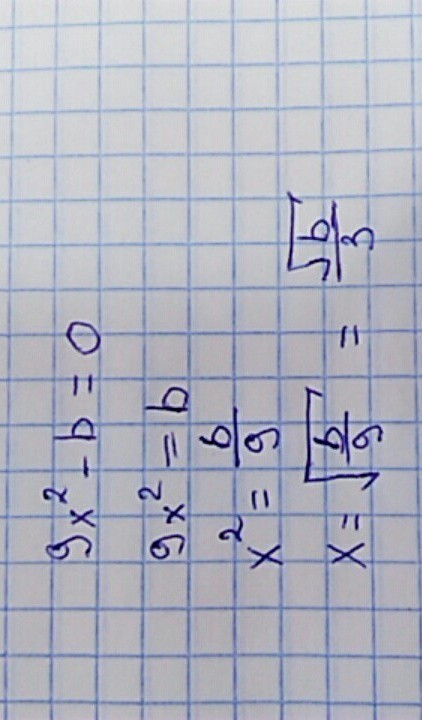 9x² - b = 0
9x² = b
x² = b/9
x = √(b/9) = √b/3